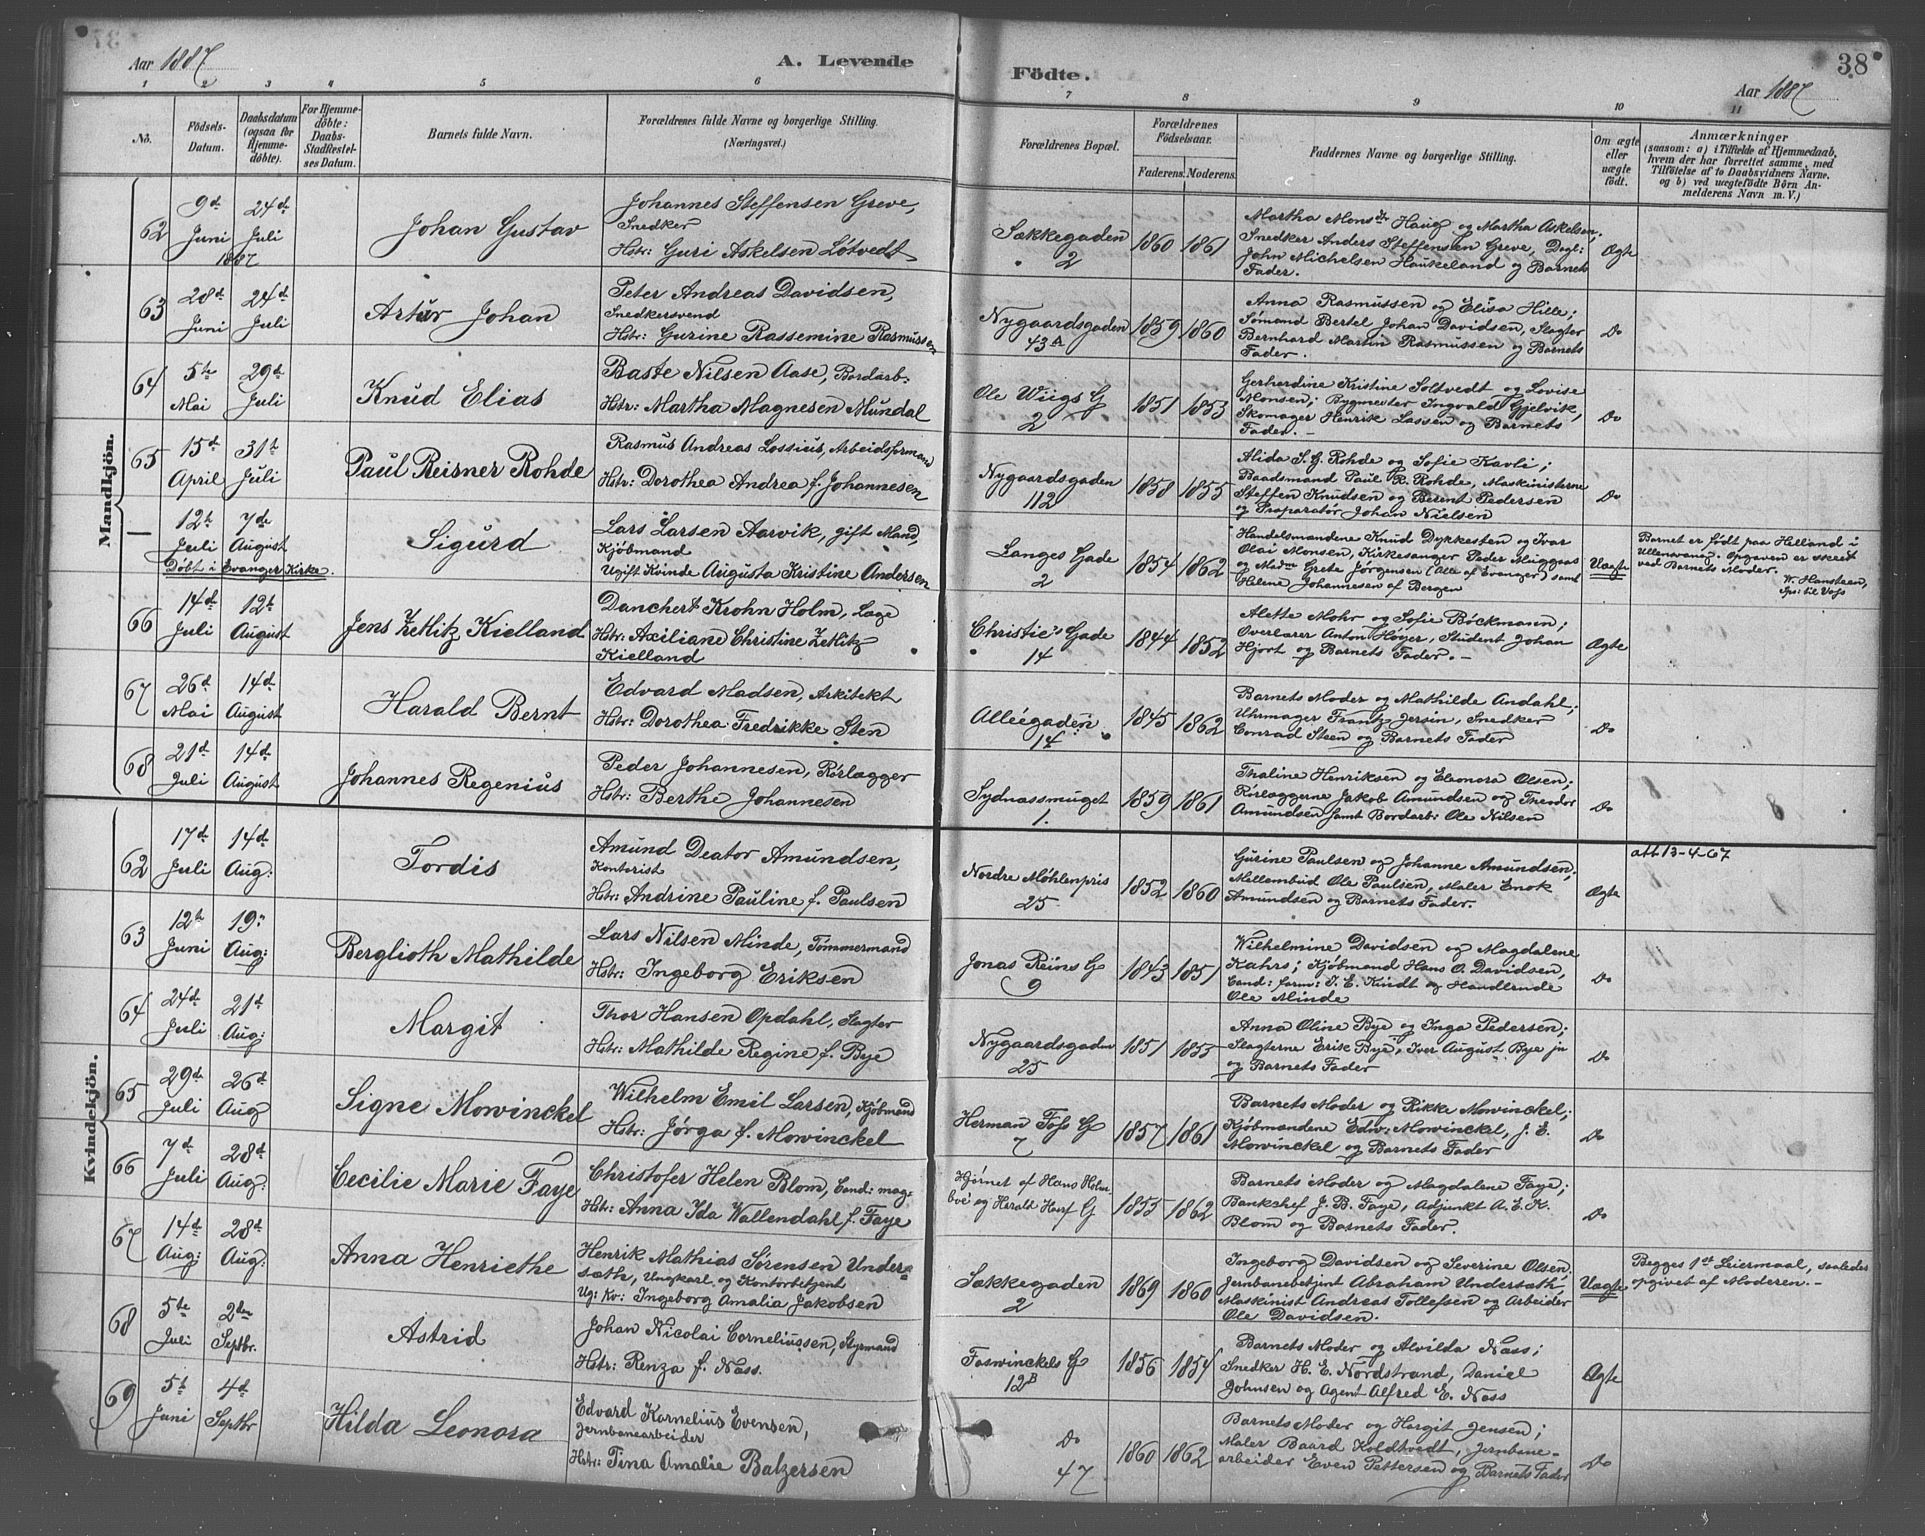 Aar 1887
A. Levende
Födte.
Aar 1887
38
1 2 3 4 5 6 7 8 9 10 11
No.
Födsels-Datum.
Daabsdatum (ogsaa for Hjemmedöbte).
For Hjemmedöbte: Daabs-Stadfæstelses Datum.
Barnets fulde Navn.
Forældrenes fulde Navne og borgerlige Stilling.
(Næringsvei.)
Forældrenes Bopæl.
Forældrenes Födselsaar.
Faderens. Moderens.
Faddernes Navne og borgerlige Stilling.
Om ægte eller uægte födt.
Anmærkninger
(saasom: a) i Tilfælde af Hjemmedaab, hvem der har forrettet samme, med Tilföielse af to Daabsvidners Navne, og b) ved uægtefödte Börn Anmelderens Navn m. V.)
Mandkjön.
62
9d Juni 1887
24d Juli
Johan Gustav
Johannes Steffensen Greve,
Snedker
Hstr: Guri Askelsen Løtvedt
Sækkegaden
2
1860 1861
Martha Mons dtr Haug og Martha Askelsen,
Snedker Anders Steffensen Greve, Dagl:
John Michelsen Haukeland og Barnets
Fader.
Ægte
63
28d Juni
24d Juli
Artur Johan
Peter Andreas Davidsen,
Snedkersvend
Hstr: Gurine Rassemine Rasmussen
Nygaardsgaden
43A
1859 1860
Anna Rasmussen og Elisa Hille;
Sømand Bertel Johan Davidsen, Slagter
Bernhard Martin Rasmussen og Barnets
Fader.
Do
64
5te Mai
29d Juli
Knud Elias
Baste Nilsen Aase, Bordarb:
Hstr: Martha Magnesen Mundal
Ole Wiigs G
2
1851 1853
Gerhardine Kristine Soltvedt og Lovise
Monsen; Bygmester Ingvald Gjelvik,
Skomager Henrik Lassen og Barnets
Fader.
Do
65
15d April
31te Juli
Paul Reisner Rohde
Rasmus Andreas Lossius, Arbeidsformand
Hstr: Dorothea Andrea f. Johannesen
Nygaardsgaden
112
1858 1855
Alida S. G. Rohde og Sofie Kavli;
Baadsmand Paul R. Rohde, Maskinisterne
Steffen Knudsen og Berent Pedersen
og Præparatør Johan Nielsen
Do
—
12te Juli
7de August
Døbt i Evanger Kirke.
Sigurd
Lars Larsen Aarvik, gift Mand,
Kjøbmand
Ugift Kvinde Augusta Kristine Andersen
Langes Gade
2
1854 1862
Handelsmændene Knud Dykkesten og Ivar
Olai Monsen, Kirkesanger Peder Muggaas
og Madm Grete Jørgensen (Alle af Evanger) samt
Helene Johannesen af Bergen
Uægte
Barnet er født paa Helland i
Ullensvang. Opgaven er skeet
ved Barnets Moder.
W. Hansteen,
Spr: til Voss
66
14d Juli
12te August
Jens Zetlitz Kielland
Danchert Krohn Holm, Læge
Hstr: Axiliane Christine Zetlitz
Kielland
Christie's Gade
14
1844 1852
Alette Mohr og Sofie Böckmann;
Overlærer Anton Høyer, Student Johan
Hjort og Barnets Fader.
Ægte
67
26d Mai
14d August
Harald Bernt
Edvard Madsen, Arkitekt
Hstr: Dorothea Fredrikke Sten
Alleegaden
14
1845 1862
Barnets Moder og Mathilde Andahl;
Uhrmager Frantz Jersin, Snedker
Conrad Steen og Barnets Fader
Do
68
21d Juli
14d August
Johannes Regenius
Peder Johannesen, Rørlægger
Hstr: Berthe Johannesen
Sydnæssmuget
1.
1859 1861
Thaline Henriksen og Eleonora Olsen;
Rørlæggerne Jakob Amundsen og Theodor
Amundsen samt Bordarb: Ole Nilsen
Do
Kvindekjön.
62
17d Juli
14d Aug:
Tordis
Amund Deator Amundsen,
Kontorist
Hstr: Andrine Pauline f. Paulsen
Nordre Møhlenpris
25
1852 1860
Gurine Paulsen og Johanne Amundsen;
Mellembud Ole Paulsen, Maler Enok
Amundsen og Barnets Fader.
Ægte
att 13-4-67
63
12te Juni
19. Aug:
Berglioth Mathilde
Lars Nilsen Minde, Tømmermand
Hstr: Ingeborg Eriksen
Jonas Reins G
9
1843 1851
Wilhelmine Davidsen og Magdalene
Kahrs; Kjøbmand Hans O. Davidsen,
Cand: farm: J. E. Kindt og Handlende
Ole Minde
Do
64
24d Juli
21d Aug:
Margit
Thor Hansen Opdahl, Slagter
Hstr: Mathilde Regine f. Bye
Nygaardsgaden
25
1851 1855
Anna Oline Bye og Inga Pedersen;
Slagterne Erik Bye, Iver August Bye jn
og Barnets Fader
Do
65
29d Juli
26d Aug
Signe Mowinckel
Wilhelm Emil Larsen, Kjøbmand
Hstr: Jørga f. Mowinckel
Herman Foss G
7
1857 1861
Barnets Moder og Rikke Mowinckel;
Kjøbmændene Edw: Mowinckel, J. E.
Mowinckel og Barnets Fader
Do
66
7d Juli
28d Aug:
Cecilie Marie Faye
Christofer Helen Blom, Cand: mag:
Hstr: Anna Ida Wallendahl f. Faye
Hjørnet af Hans Holmboe og Harald Haarf G
1855 1862
Barnets Moder og Magdalene Faye;
Bankchef J. B. Faye, Adjunkt A. E. K.
Blom og Barnets Fader.
Do
67
14d Aug:
28d Aug:
Anna Henriethe
Henrik Mathias Sørensen Undersæth, Ungkarl og Kontorbetjent
Ug: Kv: Ingeborg Amalia Jakobsen
Sækkegaden
2
1869 1860
Ingeborg Davidsen og Severine Olsen,
Jernbanebetjent Abraham Undersæth,
Maskinist Andreas Tollefsen og Arbeider
Ole Davidsen.
Uægte
Begges 1st Leiermaal, saaledes
opgivet af Moderen.
68
5te Juli
2den Septbr.
Astrid
Johan Nicolai Corneliussen, Styrmand
Hstr: Renza f. Næss.
Foswinckels G
12B
1856 1854
Barnets Moder og Alvilda Næss;
Snedker H. E. Nordstrand, Daniel
Johnsen og Agent Alfred E. Næss
Ægte
69
5te Juni
4d Septbr
Hilda Leonora
Edvard Kornelius Evensen,
Jernbanearbeider
Hstr: Tina Amalie Balzersen
Do
47
1860 1862
Barnets Moder og Hargit Jensen;
Maler Baard Koldtvedt, Jernbanearbeider Even Pettersen og Barnets Fader
Do